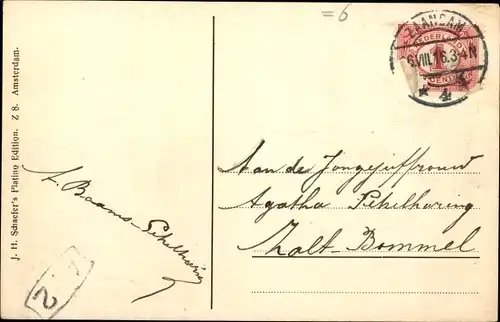 =6
ZAANDAM
NEDERLAND
6.VIII.16.3-4N
1
CENT
* 4
J. H. Schaefer's Platino Edition. Z 8. Amsterdam.
A. Baans-Pekelharing
Aan de Jongejuffrouw
Agatha Pekelharing
Zalt-Bommel
2